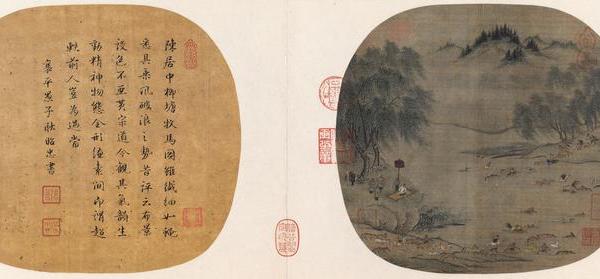 陳居中柳塘牧馬圖雖纖細如
悉具乘風破浪之勢昔評云布景
設色不亞黃宗道今觀其氣韻生
動精神物態全形縑素間即謂超
軼前人豈為過當
襄平子耿昭忠書